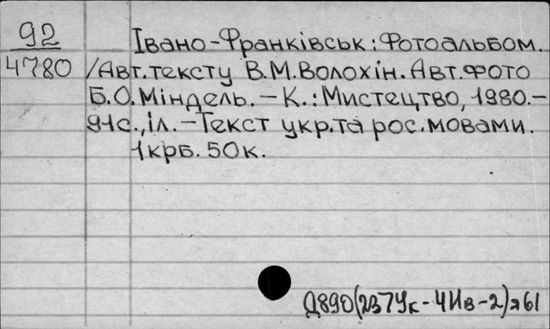 92
4780
Івано-Франківськ: Фотоальбом.
/Авт. тексту В.М. Волохін. Авт. фото
Б.О. Міндель. – К.: Мистецтво, 1980. –
91с., іл. – Текст укр. та рос. мовами.
1крб. 50к.
Д890(2З7Ук-4Ив-2)я61